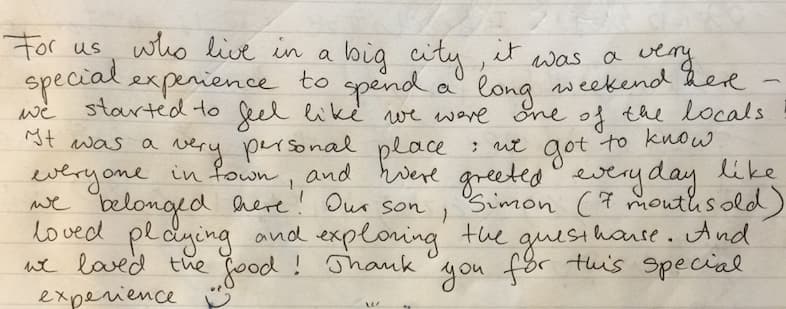 For us who live in a big city, it was a very
special experience to spend a long weekend here -
we started to feel like we were one of the locals!
It was a very personal place: we got to know
everyone in town, and were greeted everyday like
we belonged here! Our son, Simon (7 months old)
loved playing and exploring the guesthouse. And
we loved the food! Thank you for this special
experience